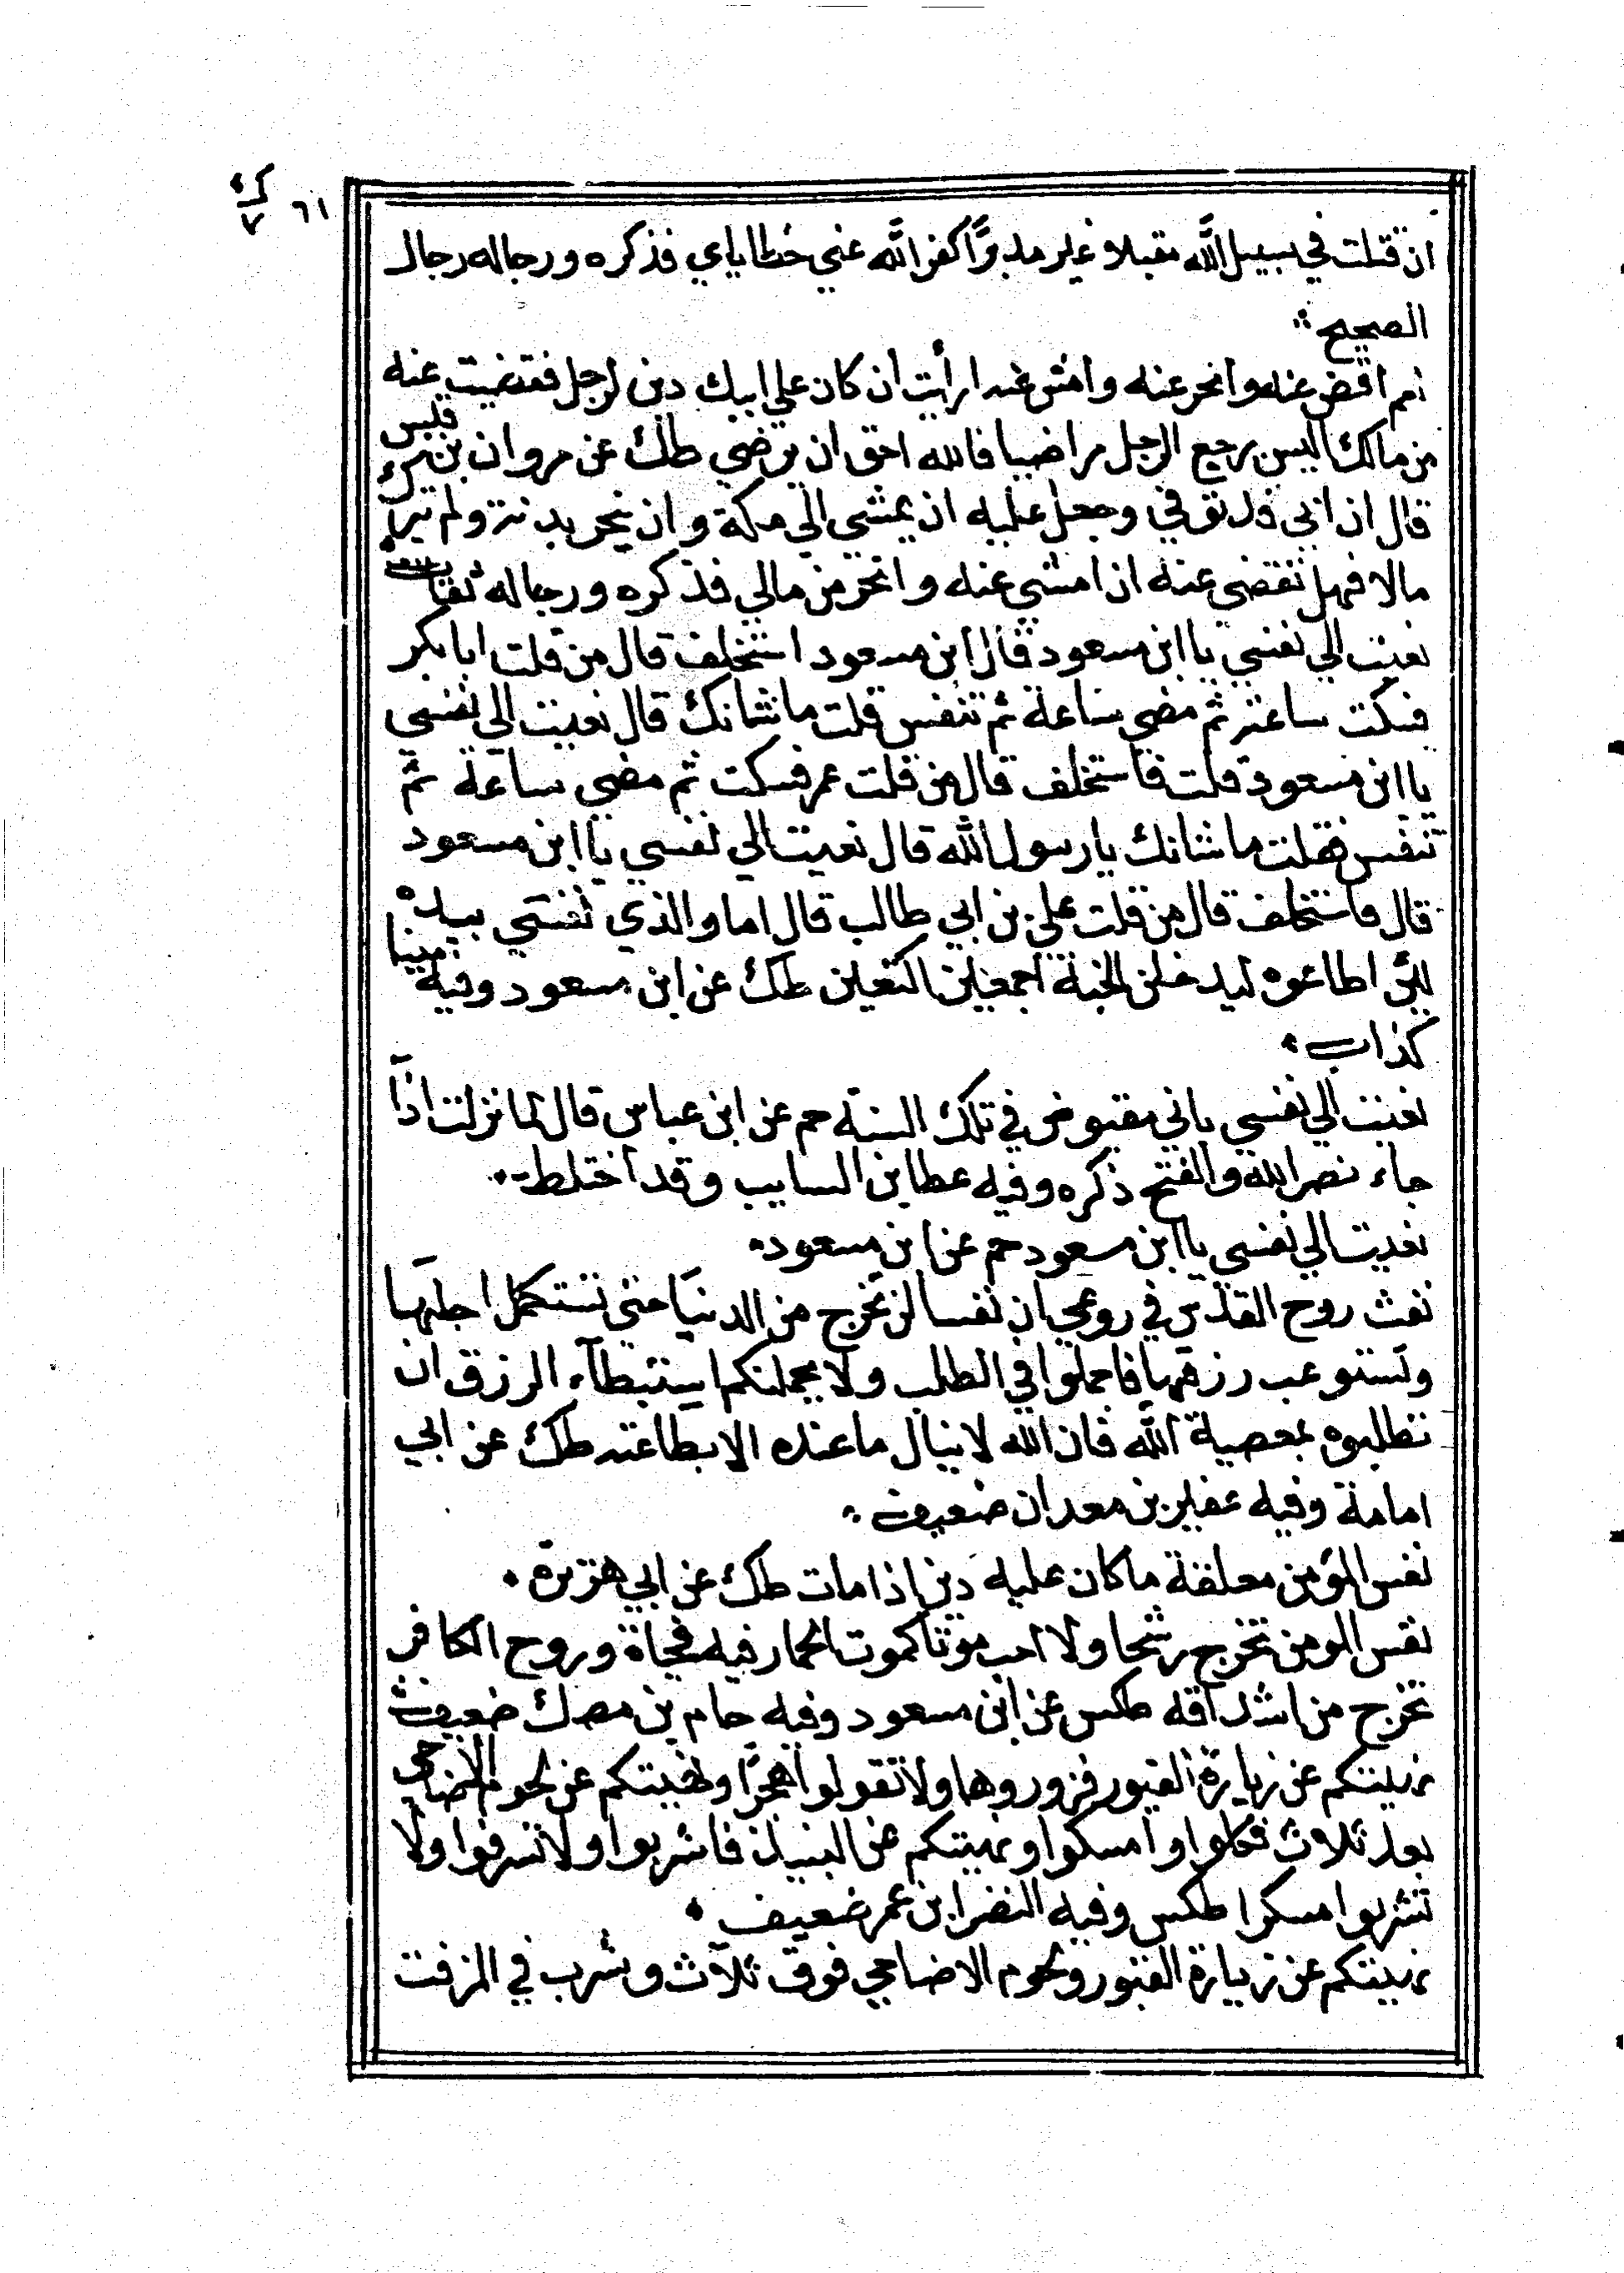 ٦١
ان قتلت في سبيل الله مقبلا غير مدبرا كفر الله عني خطاياي فذكره ورجاله رجال
الصحيح
نعم اقض عنه وانحر عنه وامش عنه ارأيت ان كان علي ابيك دين لرجل فقضيت عنه
من مالك اليس يرجع الرجل راضيا فالله احق ان يرضي طك عن مروان بن قيس
قال ان ابي قد توفي وجعل عليه ان يمشي الي مكة وان ينحر بدنة ولم يترك
مالا فهل نقضي عنه ان امشي عنه وانحر من مالي فذكره ورجاله ثقات
نعيت الي نفسي يا ابن مسعود قال ابن مسعود استخلف قال من قلت ابا بكر
فسكت ساعة ثم مضي ساعة ثم تنفس قلت ما شانك قال نعيت الي نفسي
يا ابن مسعود قلت فاستخلف قال من قلت عمر فسكت ثم مضي ساعة ثم
تنفس فقلت ما شانك يا رسول الله قال نعيت الي نفسي يا ابن مسعود
قال فاستخلف قال من قلت علي بن ابي طالب قال اما والذي نفسي بيده
لئن اطاعوه ليدخلن الجنة اجمعين اكتعين طك عن ابن مسعود وفيه مينا
كذاب
نعيت الي نفسي باني مقبوض في تلك السنة حم عن ابن عباس قال لما نزلت اذا
جاء نصر الله والفتح ذكره وفيه عطا بن السايب وقد اختلط
نعيت الي نفسي يا ابن مسعود حم عن ابن مسعود
نفث روح القدس في روعي ان نفسا لن تخرج من الدنيا حتي تستكمل اجلها
وتستوعب رزقها فاجملوا في الطلب ولا يحملنكم استبطاء الرزق ان
تطلبوه بمعصية الله فان الله لا ينال ما عنده الا بطاعته طك عن ابي
امامة وفيه عفير بن معدان ضعيف
نفس المؤمن معلقة ما كان عليه دين اذا مات طك عن ابي هريرة
نفس المومن تخرج رشحا ولا احب موتا كموت الحمار فيه فجاة وروح الكافر
تخرج من اشداقه طكس عن ابن مسعود وفيه حام بن مصك ضعيف
نهيتكم عن زيارة القبور فزوروها ولا تقولوا هجرا ونهيتكم عن لحوم الاضاحي
بعد ثلاث فكلوا وامسكوا ونهيتكم عن النبيذ فاشربوا ولا تسرفوا ولا
تشربوا مسكرا طكس وفيه النضر ابن عمر ضعيف
نهيتكم عن زيارة القبور ولحوم الاضاحي فوق ثلاث وشرب في المزفت